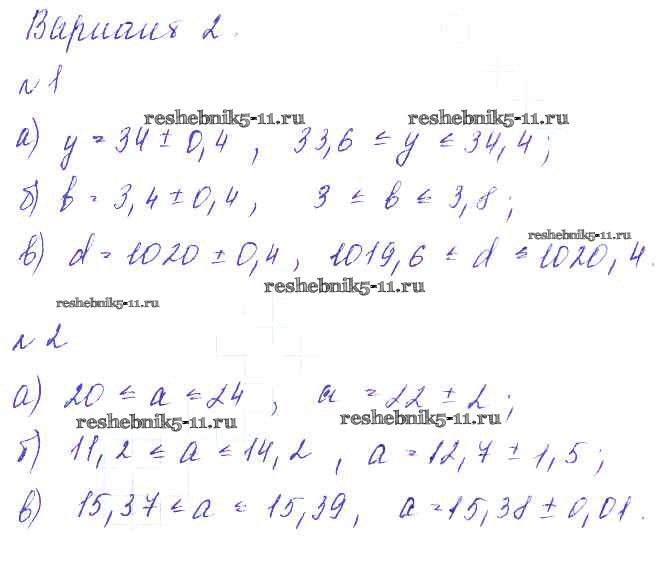 Вариант 2.
№1
reshebnik5-11.ru reshebnik5-11.ru
а) y = 34 ± 0,4 , 33,6 ≤ y ≤ 34,4 ;
б) b = 3,4 ± 0,4 , 3 ≤ b ≤ 3,8 ;
reshebnik5-11.ru
в) d = 1020 ± 0,4 , 1019,6 ≤ d ≤ 1020,4 .
reshebnik5-11.ru
reshebnik5-11.ru
№2
а) 20 ≤ a ≤ 24 , a = 22 ± 2 ;
reshebnik5-11.ru reshebnik5-11.ru
б) 11,2 ≤ a ≤ 14,2 , a = 12,7 ± 1,5 ;
в) 15,37 ≤ a ≤ 15,39 , a = 15,38 ± 0,01 .